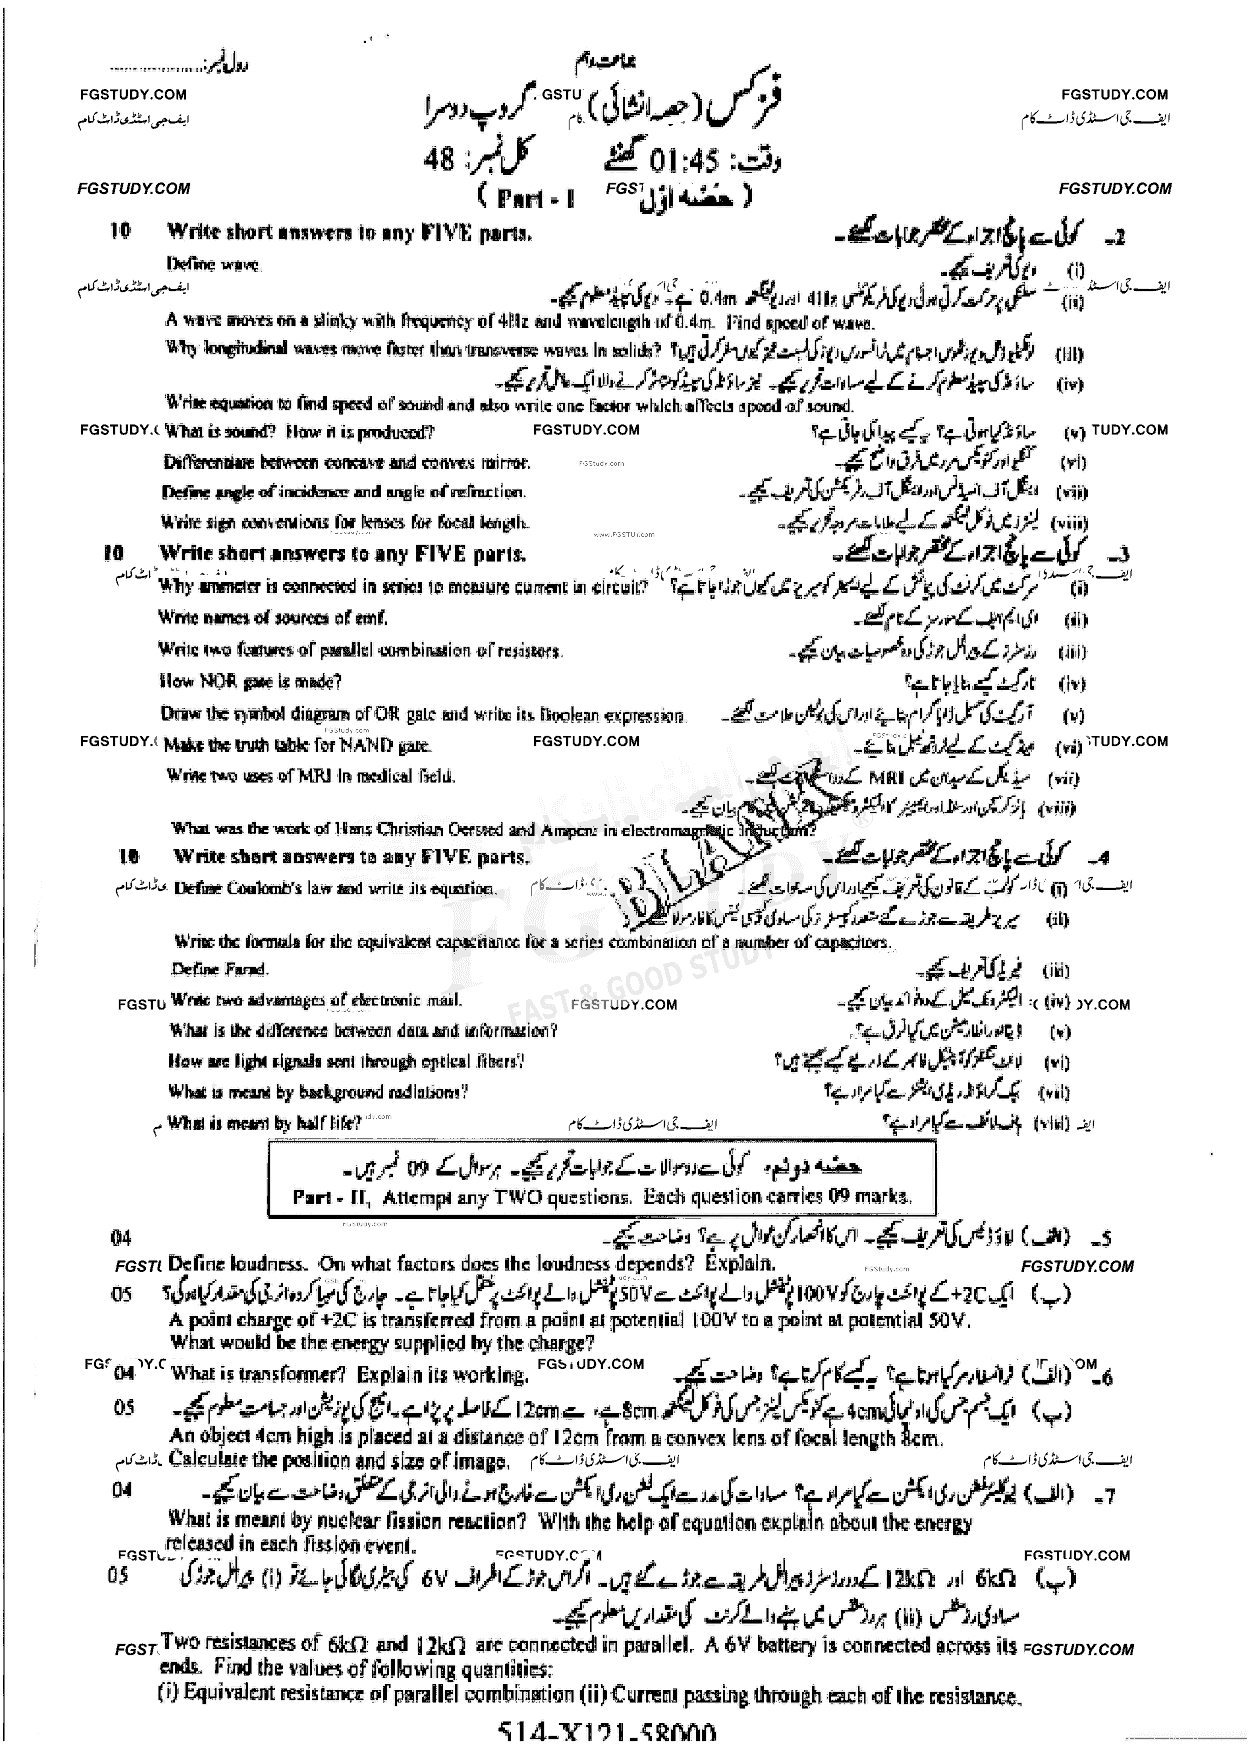 رول نمبر:
جماعت دہم
FGSTUDY.COM FGSTUDY.COM
فزکس (حصہ انشائی) گروپ دوسرا
ایف جی اسٹڈی ڈاٹ کام ایف جی اسٹڈی ڈاٹ کام
وقت: 01:45 گھنٹے کل نمبر: 48
FGSTUDY.COM FGSTUDY.COM
( Part - I حصّہ اوّل )
10 Write short answers to any FIVE parts. 2- کوئی سے پانچ اجزاء کے مختصر جوابات لکھئے۔
Define wave. (i) ویو کی تعریف کیجیے۔
(ii) سلنکی پر حرکت کرتی ہوئی ویو کی فریکوئنسی 4Hz اور ویولینگتھ 0.4m ہے۔ ویو کی سپیڈ معلوم کیجیے۔
A wave moves on a slinky with frequency of 4Hz and wavelength of 0.4m. Find speed of wave.
Why longitudinal waves move faster than transverse waves in solids? (iii)
(iv) ساؤنڈ کی سپیڈ معلوم کرنے کے لیے مساوات تحریر کیجیے۔ نیز ساؤنڈ کی سپیڈ کو متاثر کرنے والا ایک عامل تحریر کیجیے۔
Write equation to find speed of sound and also write one factor which affects speed of sound.
What is sound? How it is produced? (v) ساؤنڈ کیا ہوتی ہے؟ یہ کیسے پیدا کی جاتی ہے؟
Differentiate between concave and convex mirror. (vi) کنکیو اور کنویکس مرر میں فرق واضح کیجیے۔
Define angle of incidence and angle of refraction. (vii) اینگل آف انسیڈنس اور اینگل آف ریفریکشن کی تعریف کیجیے۔
Write sign conventions for lenses for focal length. (viii) لینز میں فوکل لینگتھ کے لیے علامات مروجہ تحریر کیجیے۔
10 Write short answers to any FIVE parts. 3- کوئی سے پانچ اجزاء کے مختصر جوابات لکھئے۔
Why ammeter is connected in series to measure current in circuit? (i) سرکٹ میں کرنٹ کی پیمائش کے لیے ایمیٹر کو سیریز میں کیوں جوڑا جاتا ہے؟
Write names of sources of emf. (ii) ای ایم ایف کے سورسز کے نام لکھئے۔
Write two features of parallel combination of resistors. (iii) رزسٹرز کے پیرالل جوڑ کی دو خصوصیات بیان کیجیے۔
How NOR gate is made? (iv) نار گیٹ کیسے بنایا جاتا ہے؟
Draw the symbol diagram of OR gate and write its Boolean expression. (v) آر گیٹ کی سمبل ڈایا گرام بنائیے اور اس کی بولین علامت لکھئے۔
Make the truth table for NAND gate. (vi) نینڈ گیٹ کے لیے ٹروتھ ٹیبل بنائیے۔
Write two uses of MRI in medical field. (vii) میڈیکل کے میدان میں MRI کے دو استعمالات لکھئے۔
(viii)
What was the work of Hans Christian Oersted and Ampere in electromagnetic induction?
BLANK
10 Write short answers to any FIVE parts. 4- کوئی سے پانچ اجزاء کے مختصر جوابات لکھئے۔
Define Coulomb's law and write its equation. (i) کولمب کے قانون کی تعریف کیجیے اور اس کی مساوات لکھئے۔
(ii)
Write the formula for the equivalent capacitance for a series combination of a number of capacitors.
Define Farad. (iii) فیراڈ کی تعریف کیجیے۔
Write two advantages of electronic mail. (iv) الیکٹرونک میل کے دو فوائد بیان کیجیے۔
What is the difference between data and information? (v) ڈیٹا اور انفارمیشن میں کیا فرق ہے؟
How are light signals sent through optical fibers? (vi) لائٹ سگنلز کو آپٹیکل فائبر کے ذریعے کیسے بھیجتے ہیں؟
What is meant by background radiations? (vii) بیک گراؤنڈ ریڈی ایشنز سے کیا مراد ہے؟
What is meant by half life? (viii) ہاف لائف سے کیا مراد ہے؟
حصّہ دوئم، کوئی سے دو سوالات کے جوابات تحریر کیجیے۔ ہر سوال کے 09 نمبر ہیں۔
Part - II, Attempt any TWO questions. Each question carries 09 marks.
04 5- (الف) لاؤڈنیس کی تعریف کیجیے۔ اس کا انحصار کن عوامل پر ہے؟ وضاحت کیجیے۔
Define loudness. On what factors does the loudness depends? Explain.
05 (ب) ایک +2C کے پوائنٹ چارج کو 100V پوٹینشل والے پوائنٹ سے 50V پوٹینشل والے پوائنٹ پر منتقل کیا جاتا ہے۔ چارج کی مہیا کردہ انرجی کی مقدار کیا ہوگی؟
A point charge of +2C is transferred from a point at potential 100V to a point at potential 50V.
What would be the energy supplied by the charge?
04 What is transformer? Explain its working. 6- (الف) ٹرانسفارمر کیا ہوتا ہے؟ یہ کیسے کام کرتا ہے؟ وضاحت کیجیے۔
05 (ب) ایک جسم جس کی اونچائی 4cm ہے کنویکس لینز جس کی فوکل لینگتھ 8cm ہے، سے 12cm کے فاصلہ پر پڑا ہے۔ امیج کی پوزیشن اور جسامت معلوم کیجیے۔
An object 4cm high is placed at a distance of 12cm from a convex lens of focal length 8cm.
Calculate the position and size of image.
04 7- (الف) نیوکلیئر فشن ری ایکشن سے کیا مراد ہے؟ مساوات کی مدد سے ایک فشن ری ایکشن سے خارج ہونے والی انرجی کے متعلق وضاحت سے بیان کیجیے۔
What is meant by nuclear fission reaction? With the help of equation explain about the energy
released in each fission event.
05 (ب) 6kΩ اور 12kΩ کے دو رزسٹرز پیرالل طریقے سے جوڑے گئے ہیں۔ اگر اس جوڑ کے اطراف 6V کی بیٹری لگائی جائے تو (i) پیرالل جوڑ کی
مساوی رزسٹنس (ii) ہر رزسٹنس میں بہنے والے کرنٹ کی مقداریں معلوم کیجیے۔
Two resistances of 6kΩ and 12kΩ are connected in parallel. A 6V battery is connected across its
ends. Find the values of following quantities:
(i) Equivalent resistance of parallel combination (ii) Current passing through each of the resistance.
514-X121-58000